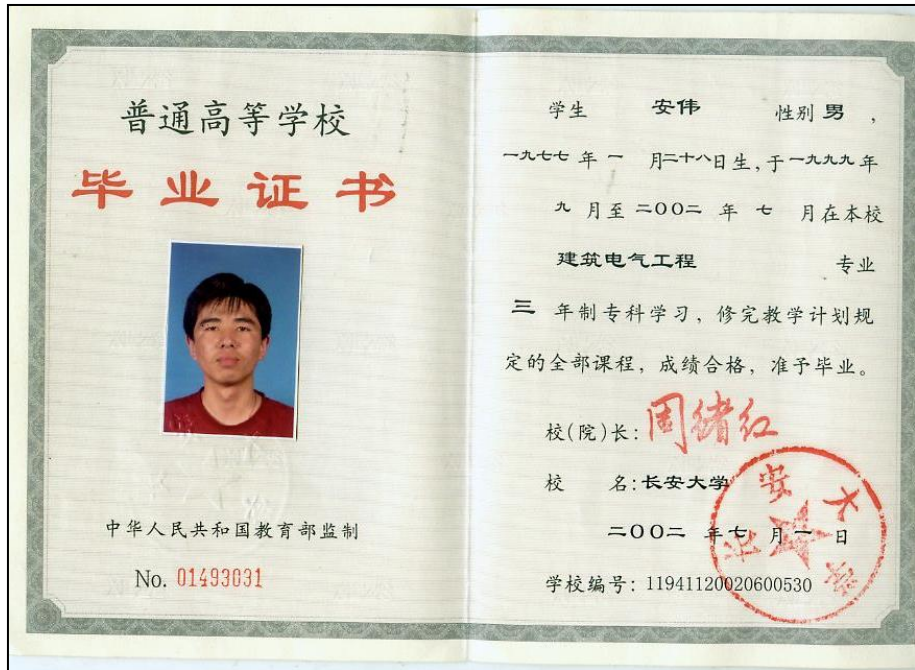 普通高等学校
毕业证书
中华人民共和国教育部监制
No. 01493031
学生 安伟 性别 男，
一九七七 年 一 月二十八日生，于一九九九年
九 月至二〇〇二 年 七 月在本校
建筑电气工程 专业
三 年制专科学习，修完教学计划规
定的全部课程，成绩合格，准予毕业。
校(院)长：周绪红
校 名：长安大学
二〇〇二 年七 月一日
学校编号：11941120020600530
长安大学